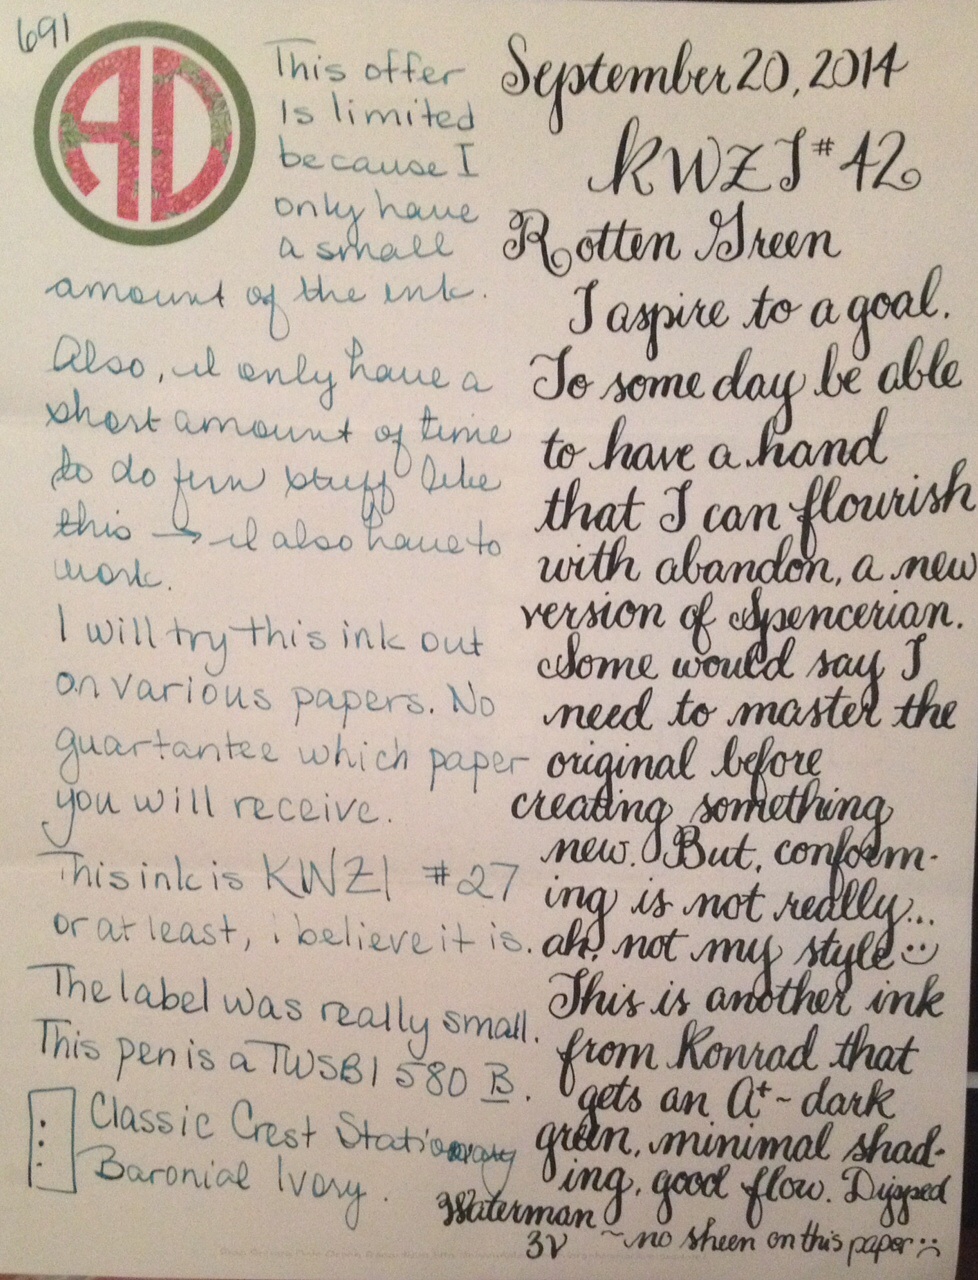 691
AD
This offer
Is limited
because I
only have
a small
amount of the ink.
Also, I only have a
short amount of time
to do fun stuff like
this → I also have to
work.
I will try this ink out
on various papers. No
guartantee which paper
you will receive.
This ink is KWZI #27
or at least, i believe it is.
The label was really small.
This pen is a TWSBI 580 B.
Classic Crest Stationary
Baronial Ivory.
September 20, 2014
KWZI #42
Rotten Green
I aspire to a goal.
To some day be able
to have a hand
that I can flourish
with abandon, a new
version of Spencerian.
Some would say I
need to master the
original before
creating something
new. But, conform-
ing is not really...
ah, not my style :)
This is another ink
from Konrad that
gets an A+ ~ dark
green, minimal shad-
ing, good flow. Dipped
Waterman
3V ~ no sheen on this paper :(